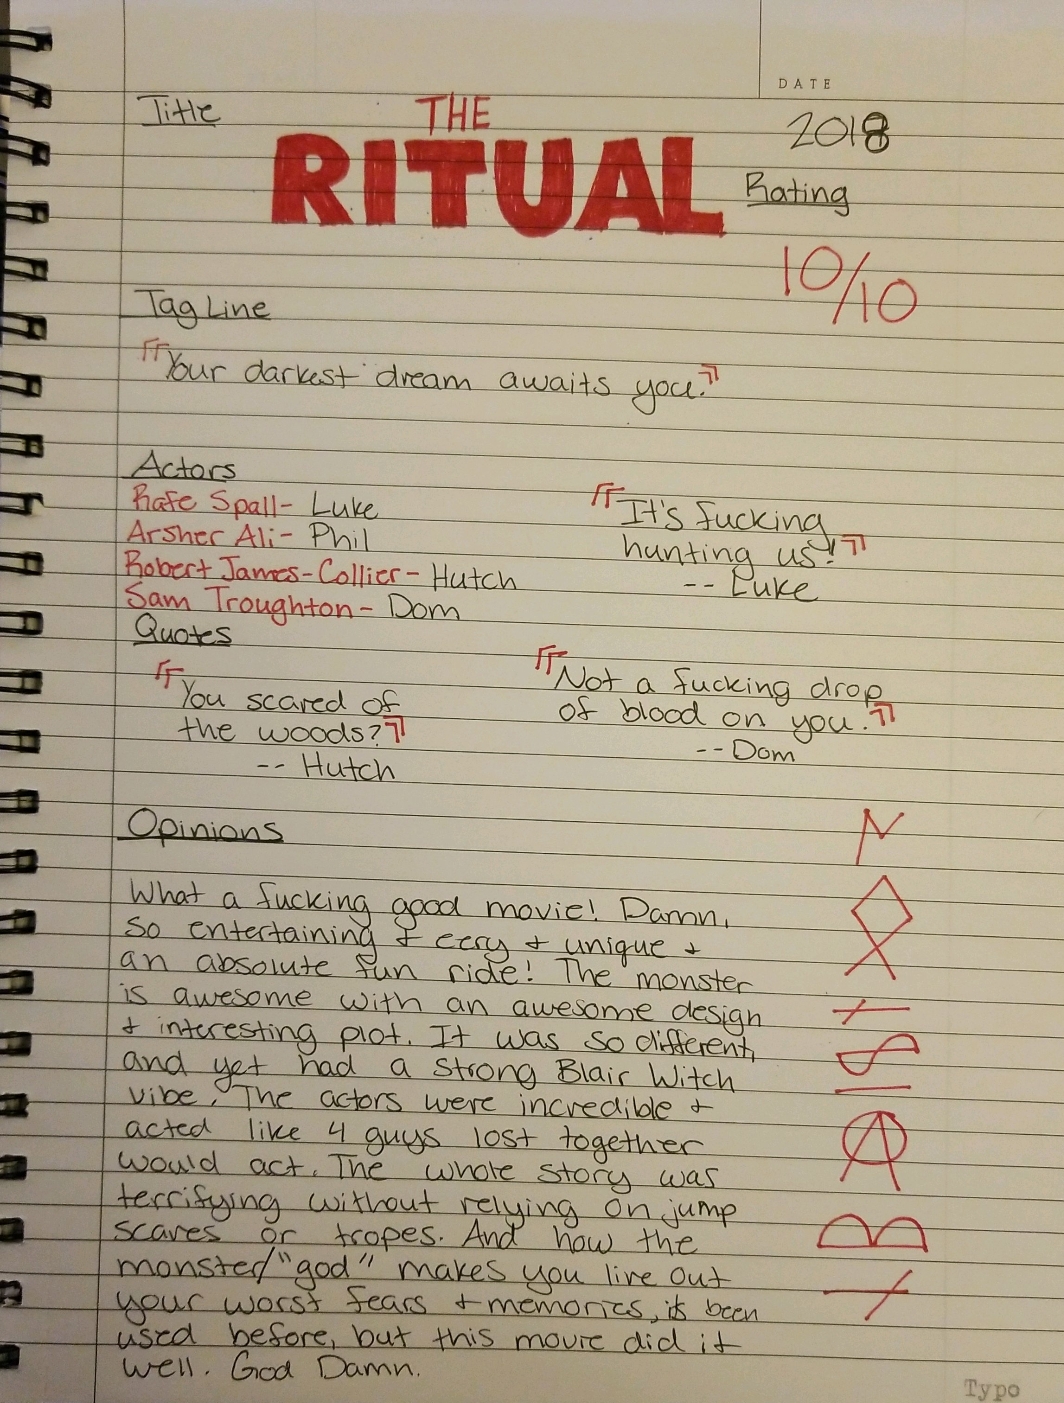 DATE
Title
THE
RITUAL
2018
Rating
10/10
Tag Line
"Your darkest dream awaits you."
Actors
Rafe Spall- Luke
Arsher Ali- Phil
Robert James-Collier- Hutch
Sam Troughton- Dom
"It's fucking
hunting us!"
-- Luke
Quotes
"You scared of
the woods?"
-- Hutch
"Not a fucking drop
of blood on you."
--Dom
Opinions
What a fucking good movie! Damn,
so entertaining + eery + unique +
an absolute fun ride! The monster
is awesome with an awesome design
+ interesting plot. It was so different,
and yet had a strong Blair Witch
vibe. The actors were incredible +
acted like 4 guys lost together
would act. The whole story was
terrifying without relying on jump
scares or tropes. And how the
monster/"god" makes you live out
your worst fears + memories, it's been
used before, but this movie did it
well. God Damn.
Typo